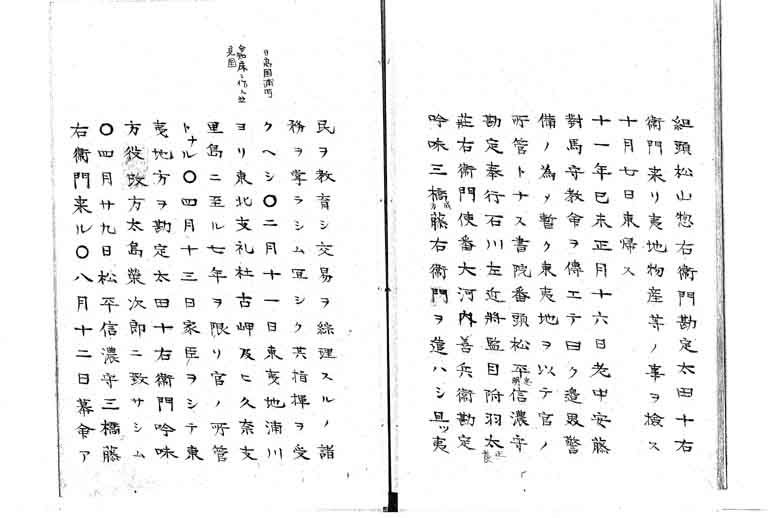 組頭松山惣右衛門勘定太田十右
衛門来リ夷地物産等ノ事ヲ検ス
十月七日東帰ス
十一年己未正月十六日老中安藤
對馬守教命ヲ傳エテ曰ク邊畧警
備ノ為メ暫ク東夷地ヲ以テ官ノ
所管トナス書院番頭松平信濃守
忠明
勘定奉行石川左近将監目附羽太
正養
荘右衛門使番大河内善兵衛勘定
吟味三橋藤右衛門ヲ遣ハシ且ツ夷
成方
民ヲ教育シ交易ヲ綜理スルノ諸
務ヲ掌ラシム宜シク其指揮ヲ受
クヘシ〇二月十一日東夷地浦川
日高国浦河
ヨリ東北支礼社古岬及ヒ久奈支
里島ニ至ル七年ヲ限リ官ノ所管
トナル〇四月十三日家臣ヲシテ東
夷地方ヲ勘定太田十右衛門吟味
方役改方太島榮次郎ニ致サシム
〇四月廿九日松平信濃守三橋藤
右衛門来ル〇八月十二日幕命ア